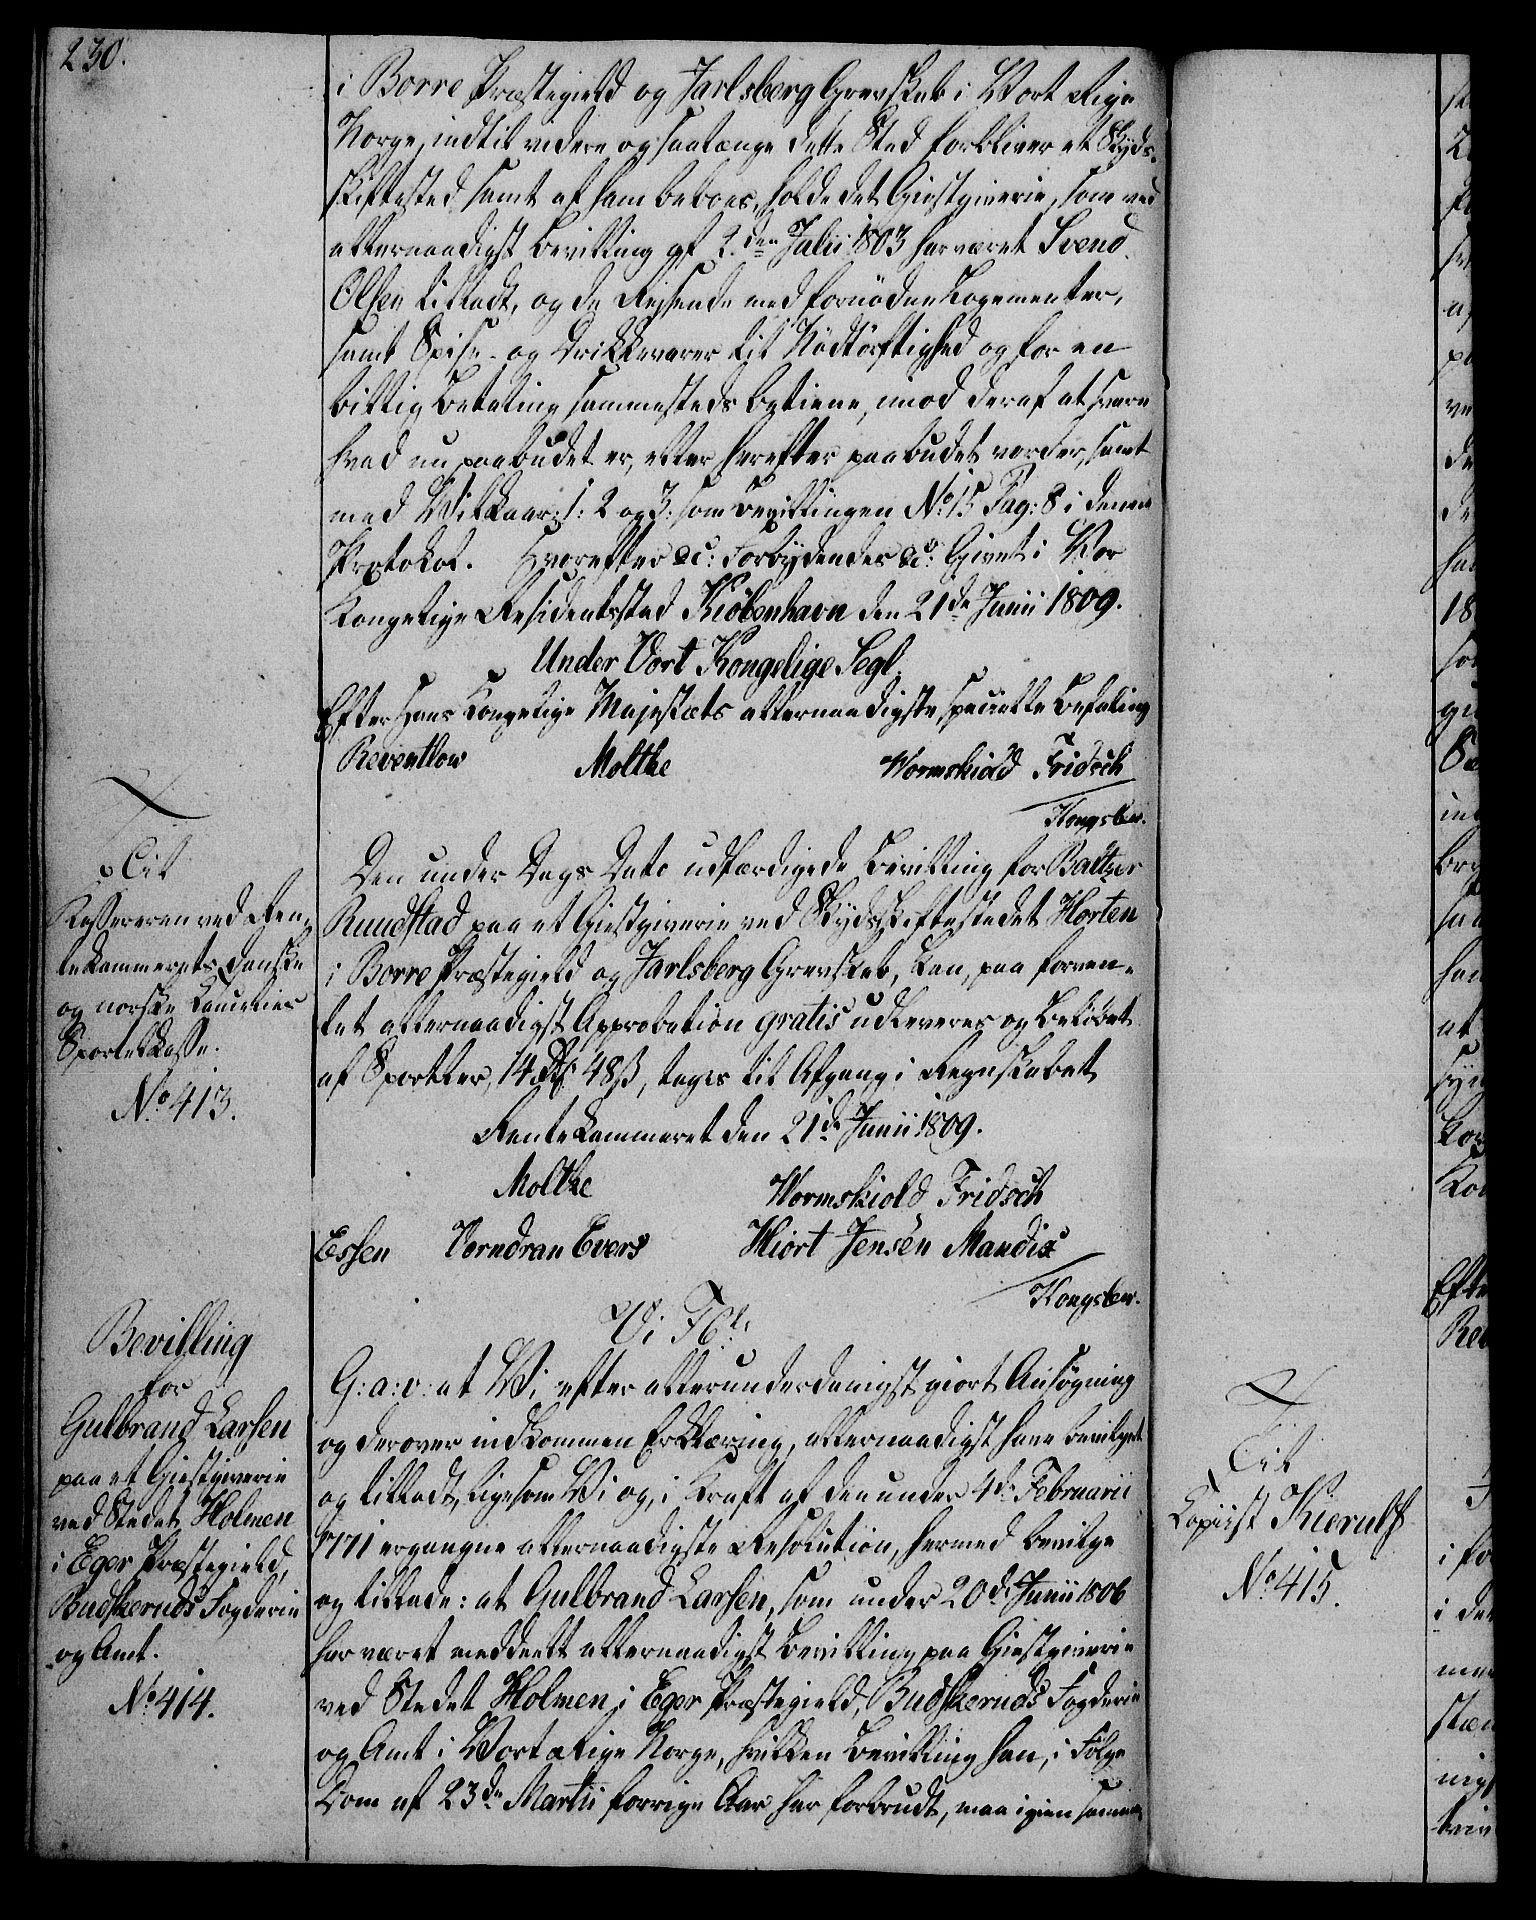 230.
i Borre Præstegield og Jarlsberg Grevskab i Vort Rige
Norge, indtil videre og saalænge dette Sted forbliver et Skyds-
skiftested samt af ham beboes, holde det Giestgiverie, som ved
allernaadigst Bevilling af 1den Julii 1803 har været Svend
Olsen tilladt, og de Reisende med fornødne Logementer,
samt Spise- og Drikkevarer til Nødtørftighed og for en
billig Betaling sammesteds betiene, imod deraf at svare
hvad nu paabudet er, eller herefter paabudet vorder, samt
med Vilkaar: 1: 2 og 3: som Bevillingen No 15 Pag: 8 i denne
Protokol. Hvorefter &c: Forbydendes &c: Givet i Vor
Kongelige Residentsstad Kiöbenhavn den 21de Junii 1809.
Under Vort Kongelige Segl.
Efter Hans Kongelige Majestæts allernaadigste specielle Befaling
Reventlow Molthe Wormskiold Fridsch
Kongslew.
Til
Kassereren ved Ren-
tekammerets danske
og norske Cancelies
Sportelkasse.
No 413.
Den under Dags Dato udfærdigede Bevilling for Baltzer
Ruudstad paa et Giestgiverie ved Skydsskiftestedet Horten
i Borre Præstegield og Jarlsberg Grevskab, kan, paa forven-
tet allernaadigst Approbation gratis udleveres og Beløbet
af Sportler, 14 Rd 48 ß, tages til Afgang i Regnskabet
Rentekammeret den 21de Junii 1809.
Molthe Wormskiold Fridsch
Essen Vorndran Evers Hiort Jensen Mandix
Kongslew.
Bevilling
for
Gulbrand Larsen
paa et Giestgiverie
ved Stedet Holmen
i Eger Præstegield,
Budskeruds Fogderie
og Amt.
No 414.
Vi F 6te:
G: a: v: at Vi, efter allerunderdanigst giort Ansøgning
og derover indkommen Erklæring, allernaadigst have bevilget
og tilladt, ligesom Vi og, i Kraft af den under 4de Februarii
1771 ergangne allernaadigste Resolution, hermed bevilge
og tillade: at Gulbrand Larsen, som under 20de Junii 1806
har været meddeelt allernaadigst Bevilling paa Giestgiverie
ved Stedet Holmen i Eger Præstegield, Budskeruds Fogderie
og Amt i Vort Rige Norge, hvilken Bevilling han, i Følge
Dom af 23de Martii forrige Aar har forbrudt, maa igien samme
Til
Copiist Kierulf
No 415.